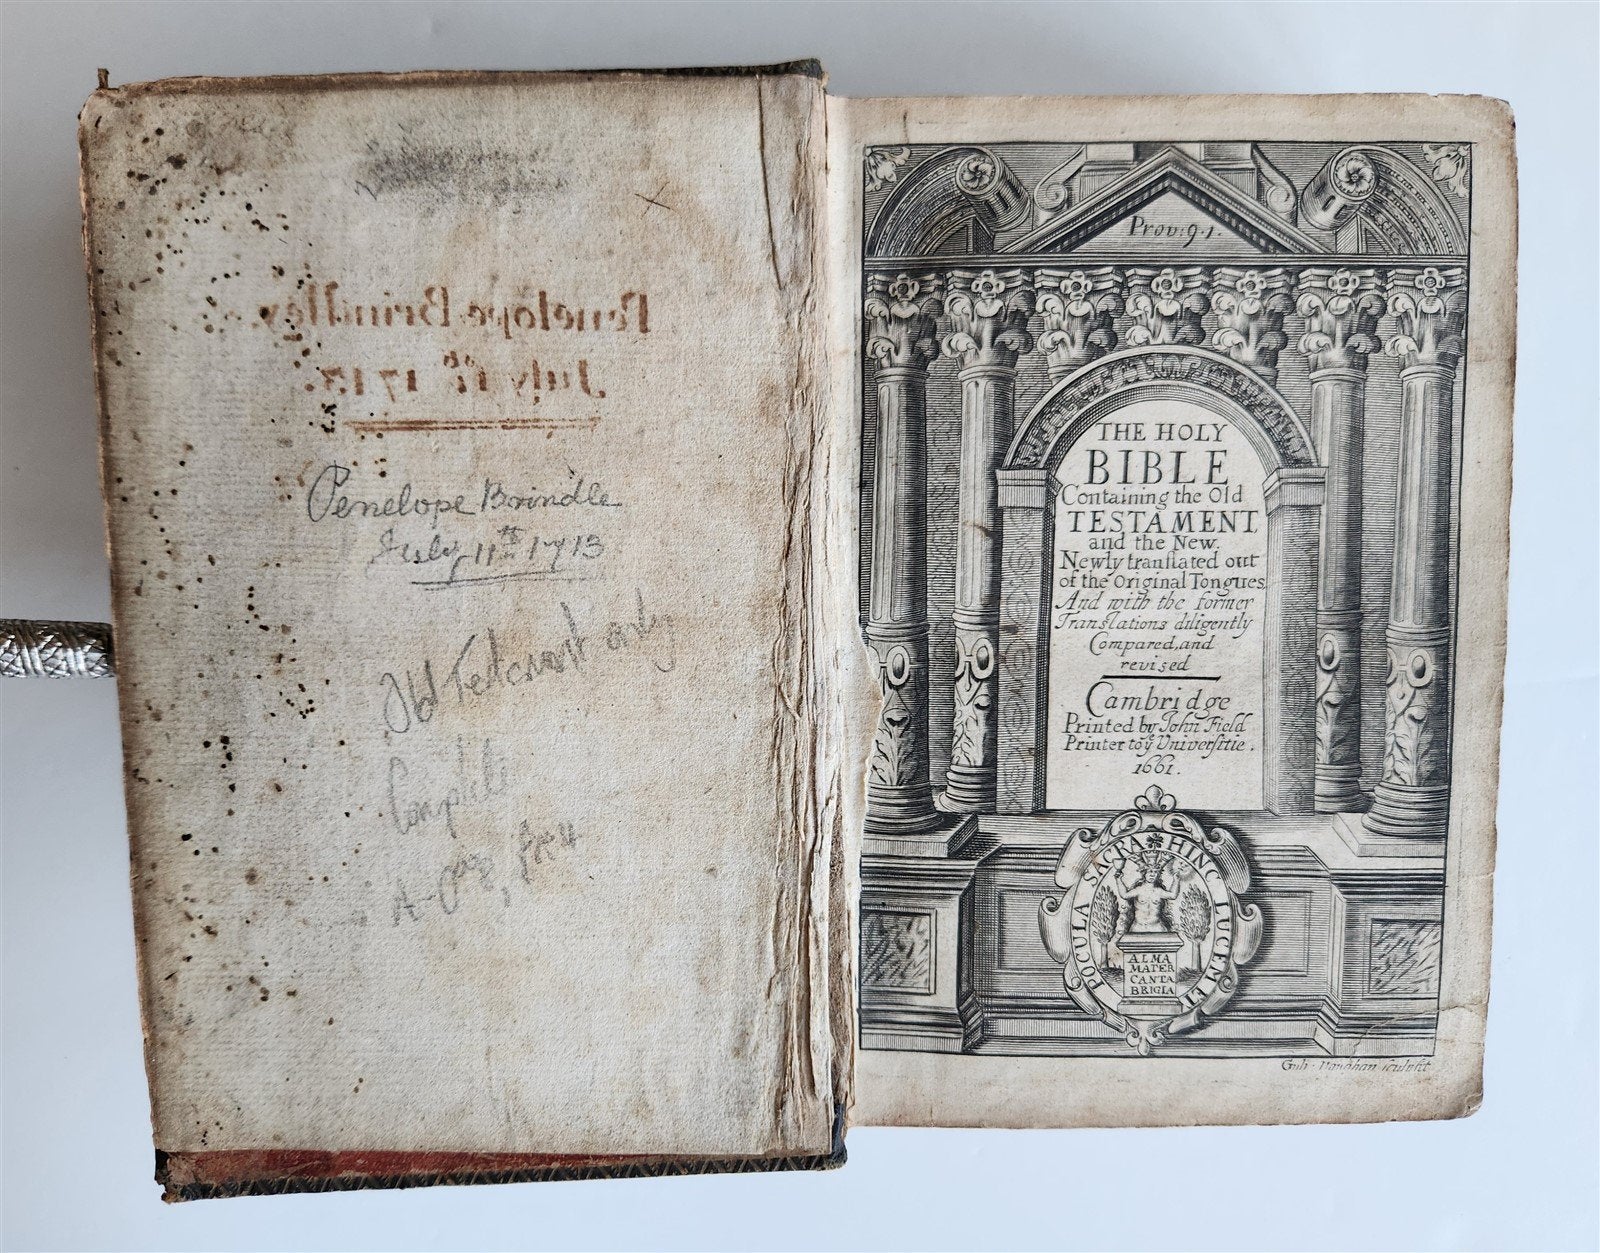 Penelope Brindley.
July 11th 1713.
Penelope Brindle
July 11th 1713
Old Testament only
Complete
Prov: 9. 1.
THE HOLY
BIBLE
Containing the Old
TESTAMENT,
and the New.
Newly tranſlated out
of the Original Tongues,
And with the former
Translations diligently
Compared, and
revised
Cambridge
Printed by John Field
Printer to yͤ Univerſitie.
1661.
POCULA SACRA HINC LUCEM ET
ALMA
MATER
CANTA
BRIGIA
Gul: Vaughan sculpſit